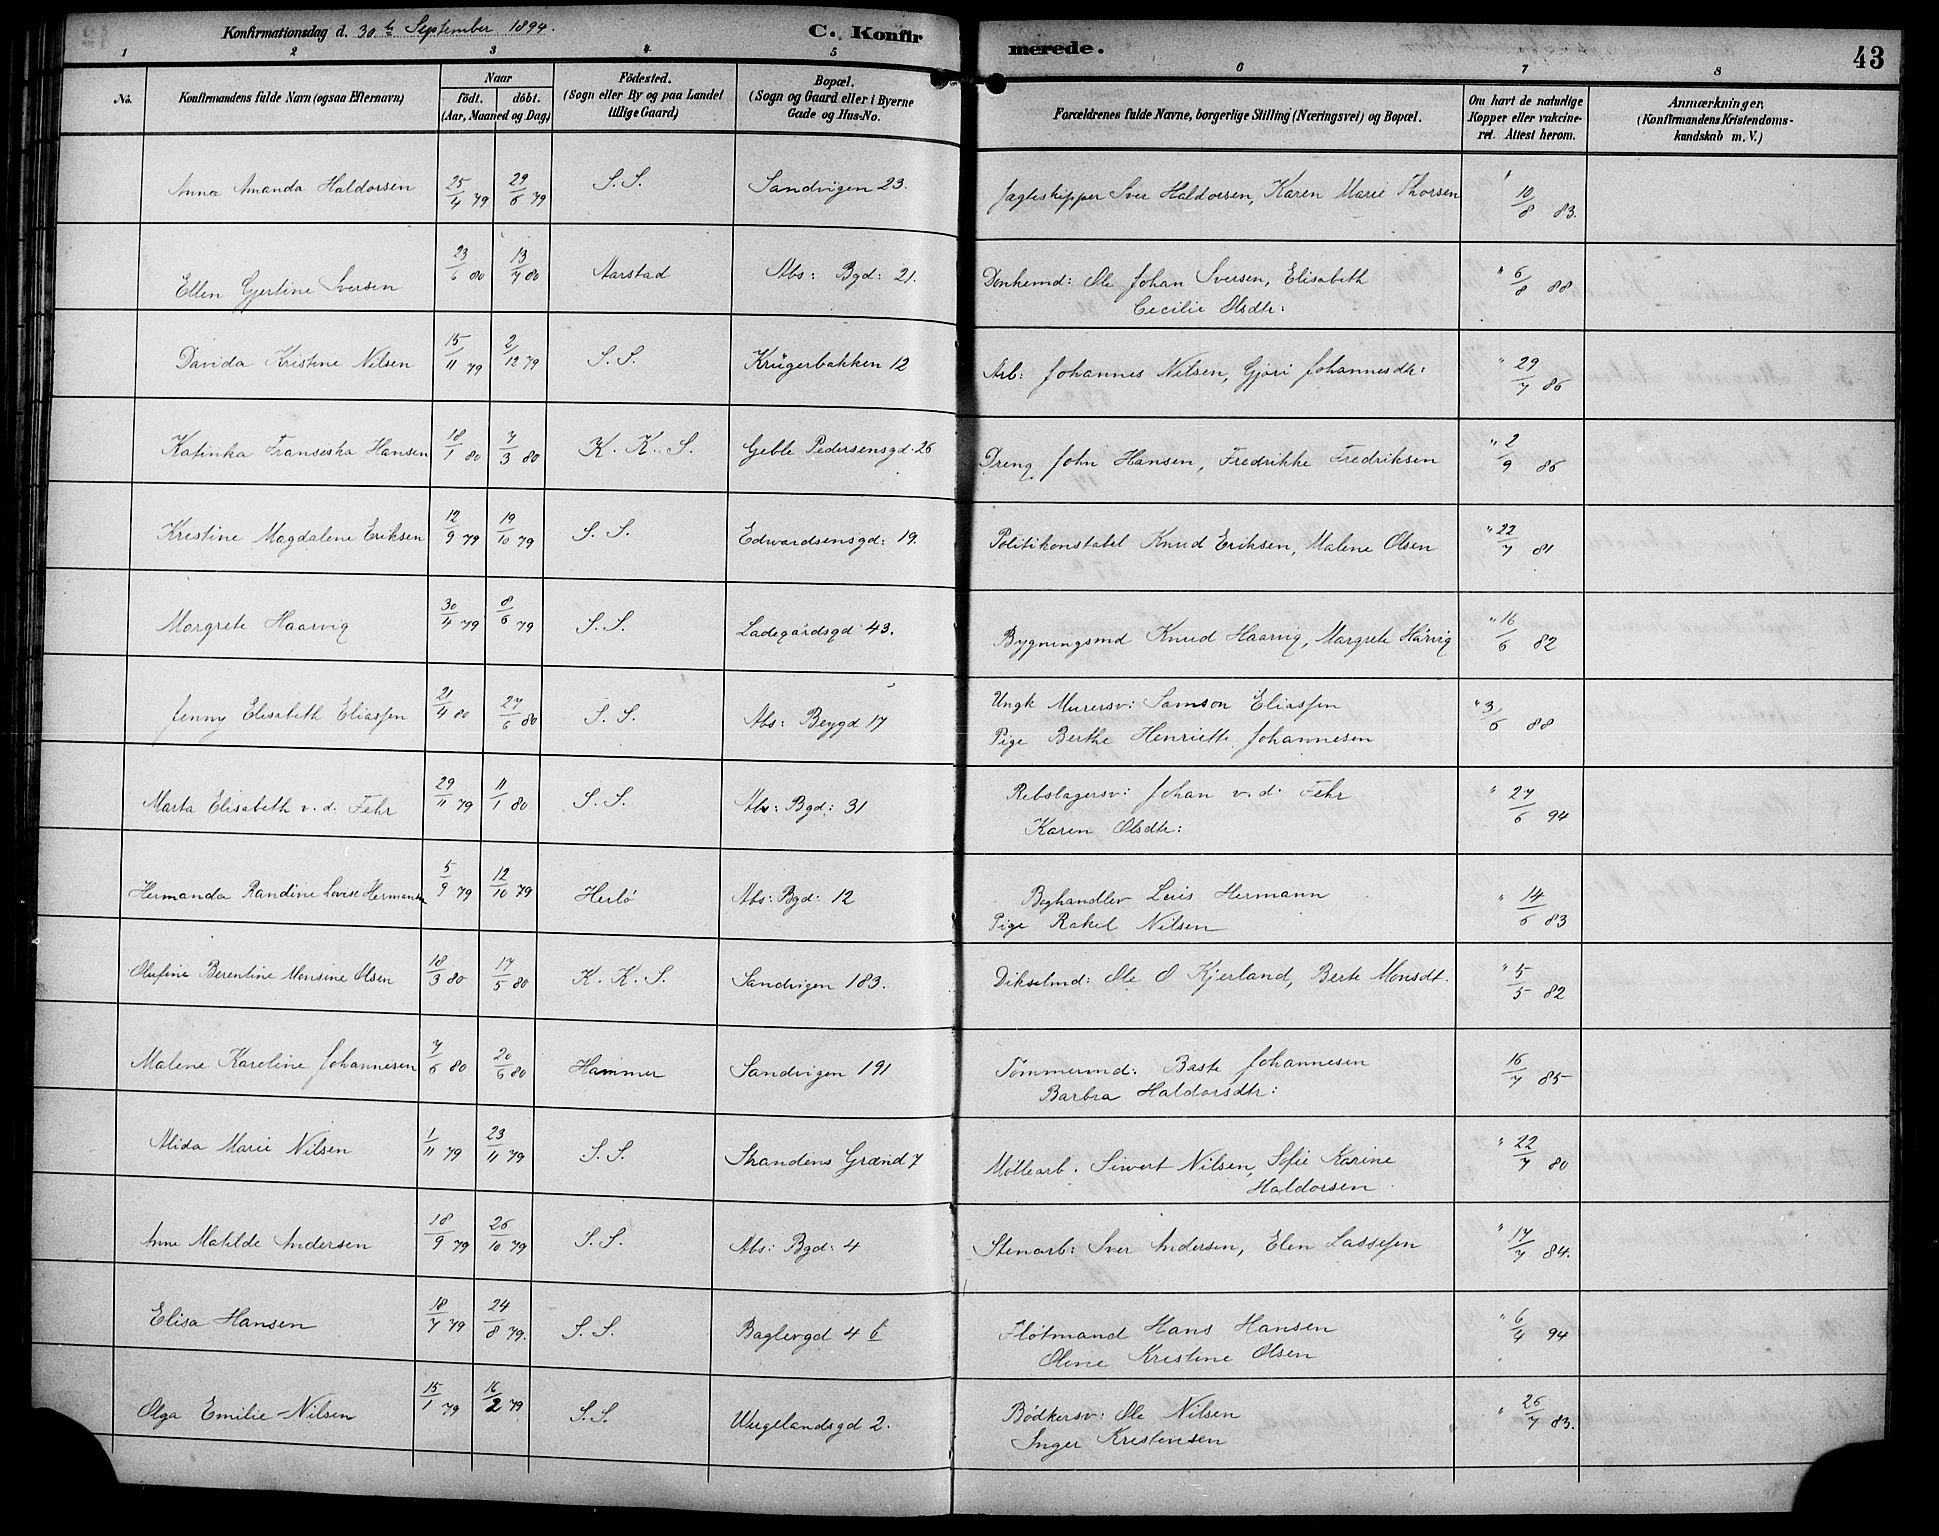 Konfirmationsdag d. 30te September 1894. C. Konfir merede. 43
1 2 3 4 5 6 7 8
No.
Konfirmandens fulde Navn (ogsaa Efternavn)
Naar
födt. döbt.
(Aar, Maaned og Dag)
Födested.
(Sogn eller By og paa Landet
tillige Gaard)
Bopæl.
(Sogn og Gaard eller i Byerne
Gade og Hus-No.
Forældrenes fulde Navne, borgerlige Stilling (Næringsvei) og Bopæl.
Om havt de naturlige
Kopper eller vakcine-
ret. Attest herom.
Anmærkninger.
(Konfirmandens Kristendoms-
kundskab m. V.)
Anna Amanda Haldorsen 25/4 79 29/6 79 S. S. Sandvigen 23. Jagteskipper Sver Haldorsen, Karen Marie Thorsen " 10/8 83.
Ellen Gjertine Sversen 23/6 80 13/7 80 Aarstad Abs: Bgd: 21. Donkemd: Ole Johan Sversen, Elisabeth " 6/8 88
Cecilie Olsdtr:
Davida Kristine Nilsen 15/11 79 2/12 79 S. S. Krügerbakken 12 Arb: Johannes Nilsen, Gjøri Johannesdtr: " 29/7 86
Kafinka Fransiska Hansen 18/1 80 7/3 80 K. K. S. Geble Pedersensgd. 26 Dreng John Hansen, Fredrikke Fredriksen " 2/9 86
Kristine Magdalene Eriksen 12/9 79 19/10 79 S. S. Edwardsensgd: 19. Politikonstabel Knud Eriksen, Malene Olsen " 22/7 81
Margrete Haarvig 30/4 79 8/6 79 S. S. Ladegårdsgd 43. Bygningsmd Knud Haarvig, Margrete Hårvig " 16/6 82
Jenny Elisabeth Eliassen 21/4 80 27/6 80 S. S. Abs: Beygd 17 Ungk Murersv: Samson Eliassen " 3/6 88
Pige Berthe Henriette Johannesen
Marta Elisabeth v. d. Fehr 29/11 79 11/1 80 S. S. Abs: Bgd: 31 Rebslagersv: Johan v. d. Fehr " 27/6 94
Karen Olsdtr:
Hermanda Randine Lovise Hermansen 5/9 79 12/10 79 Herlö Abs: Bgd: 12 Boghandler Luis Hermann " 14/6 83
Pige Rakel Nilsen
Olufine Berentine Monsine Olsen 18/3 80 17/5 80 K. K. S. Sandvigen 183. Dikselmd: Ole O Kjerland, Berte Monsdt. " 5/5 82
Malene Karoline Johannesen 7/6 80 20/6 80 Hammer Sandvigen 191 Tømmermd: Baste Johannesen 16/7 85
Barbra Haldorsdtr:
Alida Marie Nilsen 1/11 79 23/11 79 S. S. Skandens Grænd 7 Møllearb. Siwert Nilsen, Sofie Karine " 22/7 80
Haldorsen
Anne Matilde Andersen 18/9 79 26/10 79 S. S. Abs: Bgd: 4 Stenarb: Sver Andersen, Elen Lassesen " 17/7 84.
Elisa Hansen 18/7 79 24/8 79. S. S. Baglergd 4 b Fløtmand Hans Hansen " 6/4 94
Oline Kristine Olsen
Olga Emilie Nilsen 15/1 79 16/2 79 S. S. Wergelandsgd 2. Bödkersv: Ole Nilsen " 26/7 83.
Inger Kristensen